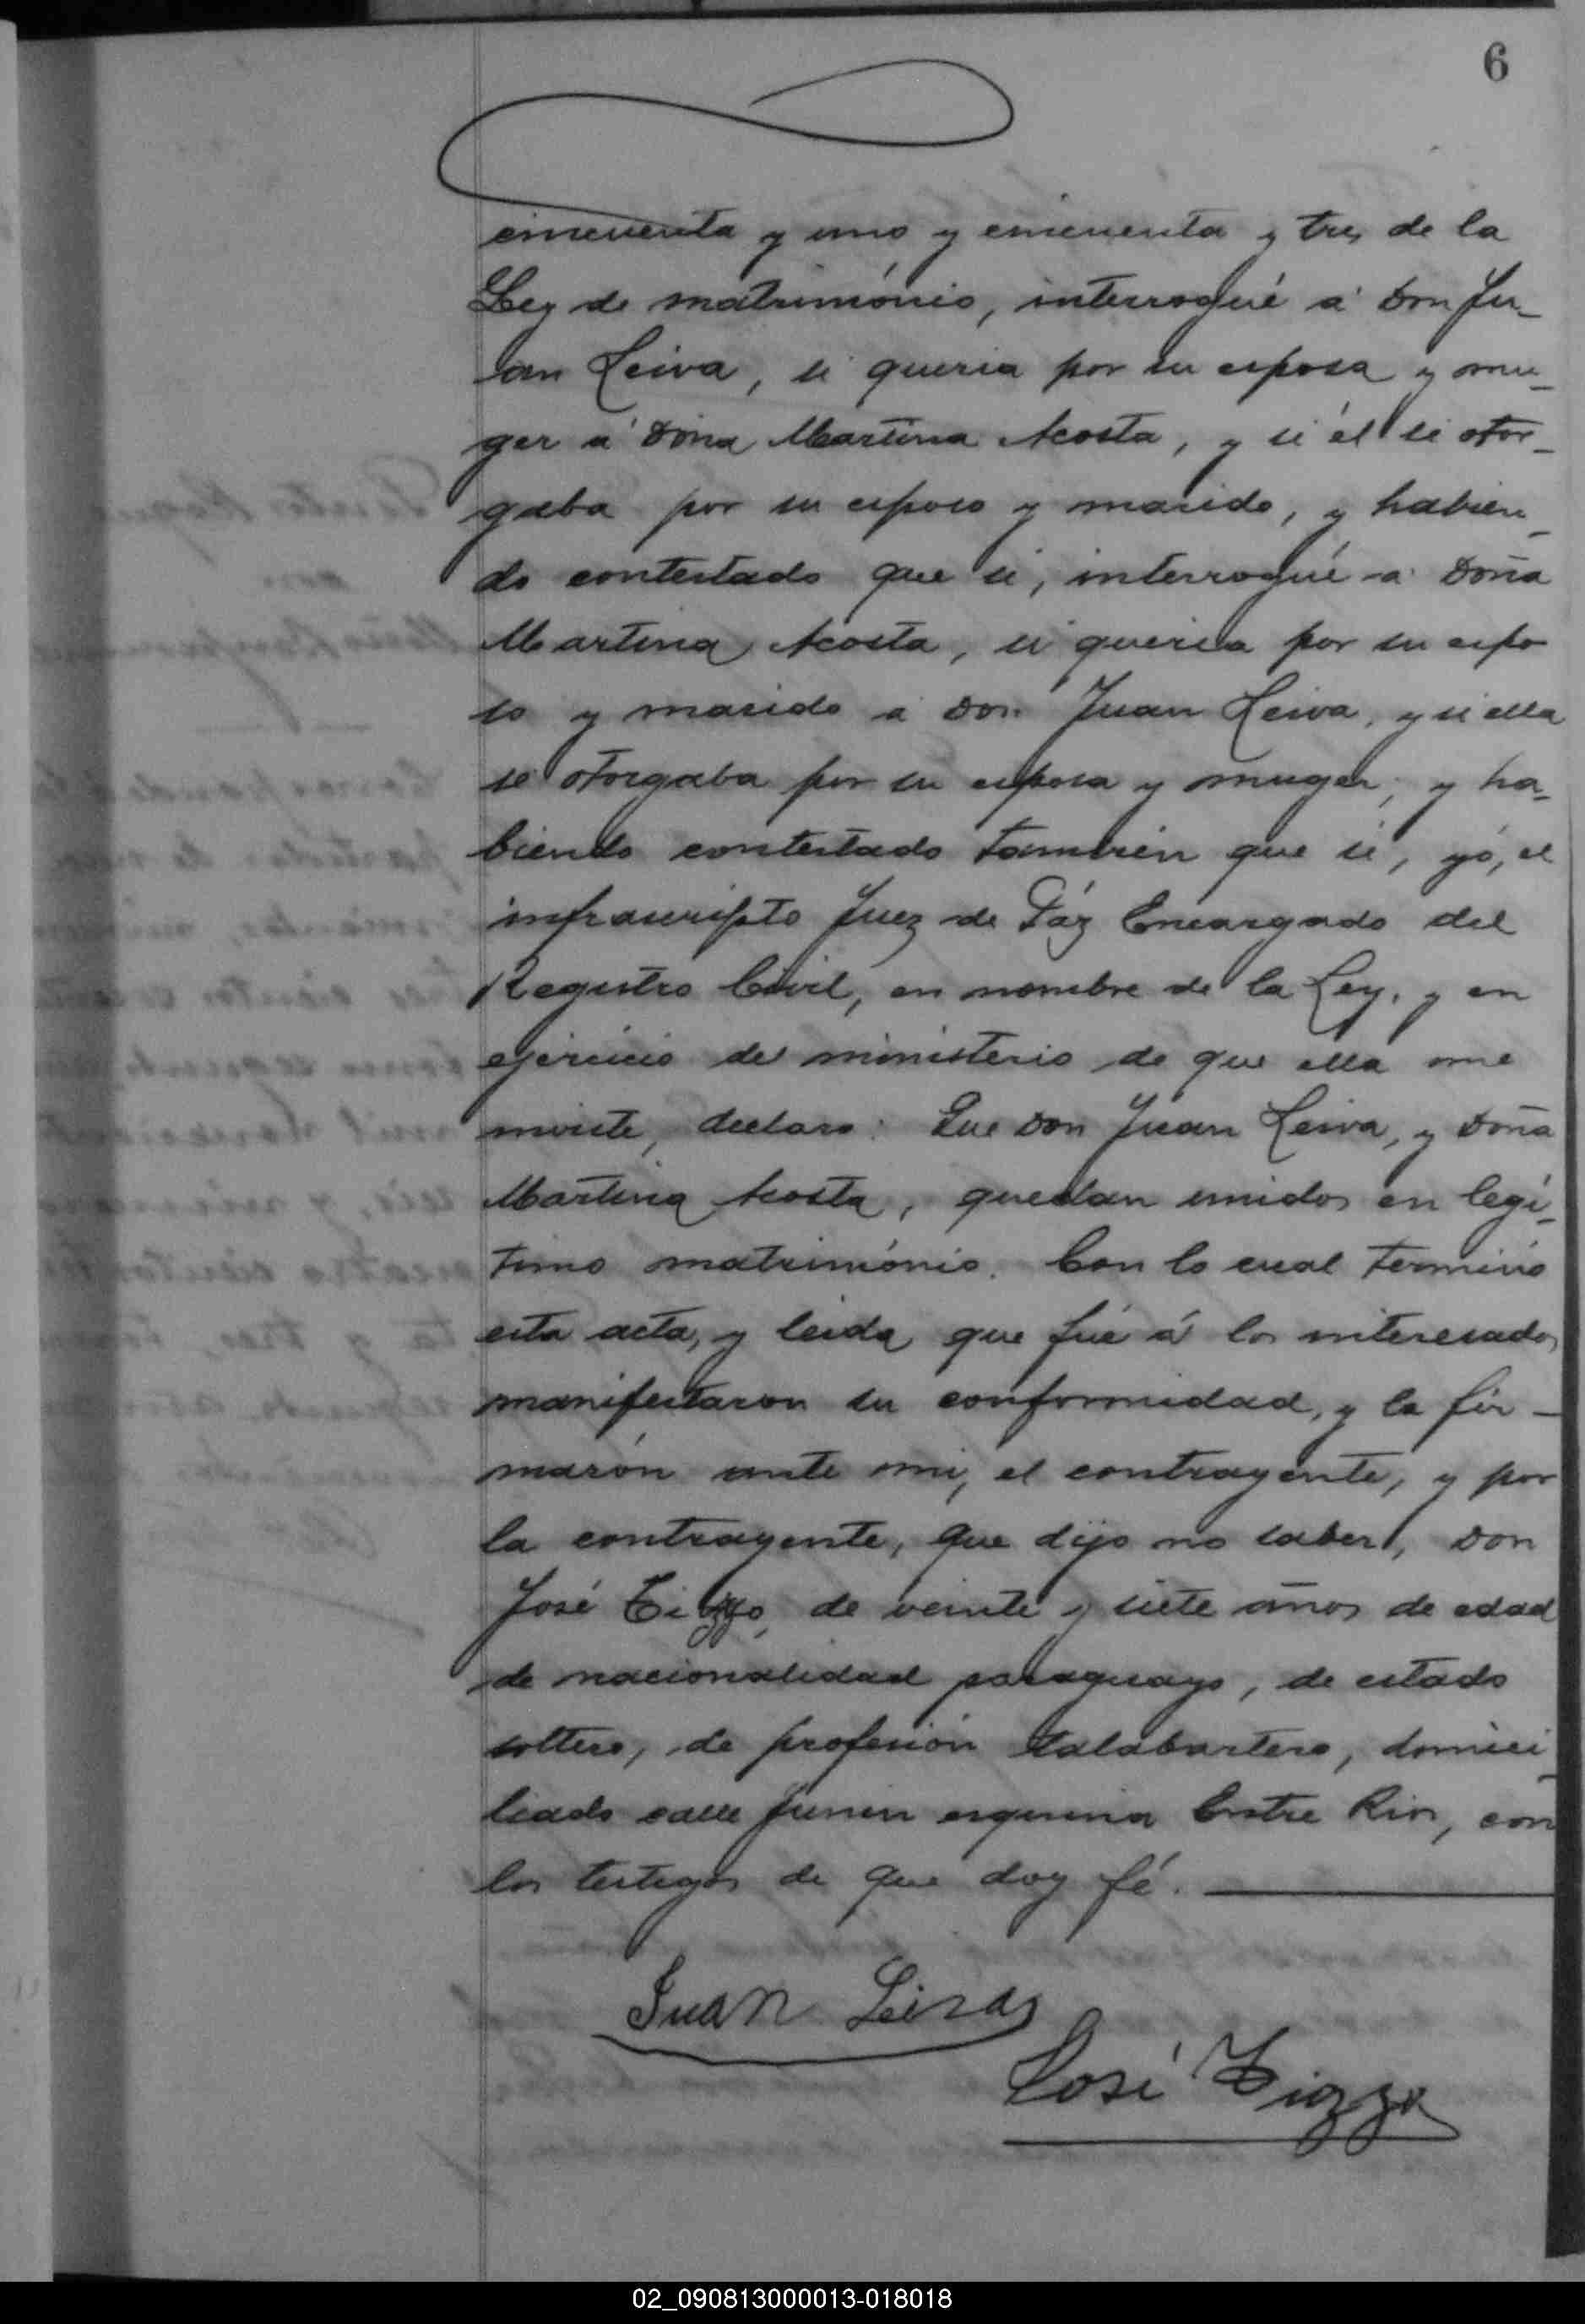 6
cincuenta y uno y cincuenta y tres de la
Ley de matrimónio, interrogué á Don Ju-
an Leiva, si queria por su esposa y mu-
ger á Doña Martina Acosta, y si él se otor-
gaba por su esposo y marido, y habien-
do contestado que si, interrogué a Doña
Martina Acosta, si queria por su espo
so y marido a Don Juan Leiva, y si ella
se otorgaba por su esposa y muger, y ha-
biendo contestado tambien que si, yó, el
infrascripto Juez de Páz Encargado del
Registro Civil, en nombre de la Ley, y en
ejercicio del ministerio de que ella me
inviste, declaro: Que Don Juan Leiva, y Doña
Martina Acosta, quedan unidos en legi-
timo matrimónio. Con lo cual terminó
esta acta, y leida que fué á los interesados
manifestaron su conformidad, y la fir-
marón ante mi, el contrayente, y por
la contrayente, que dijo no saber, Don
José Tizzo, de veinte y siete años de edad
de nacionalidad paraguayo, de estado
soltero, de profesión talabartero, domici-
liado calle Junin esquina Entre Rios, con
los testigos de que doy fé.
Juan Leiva
José Tizzo
02_090813000013-018018